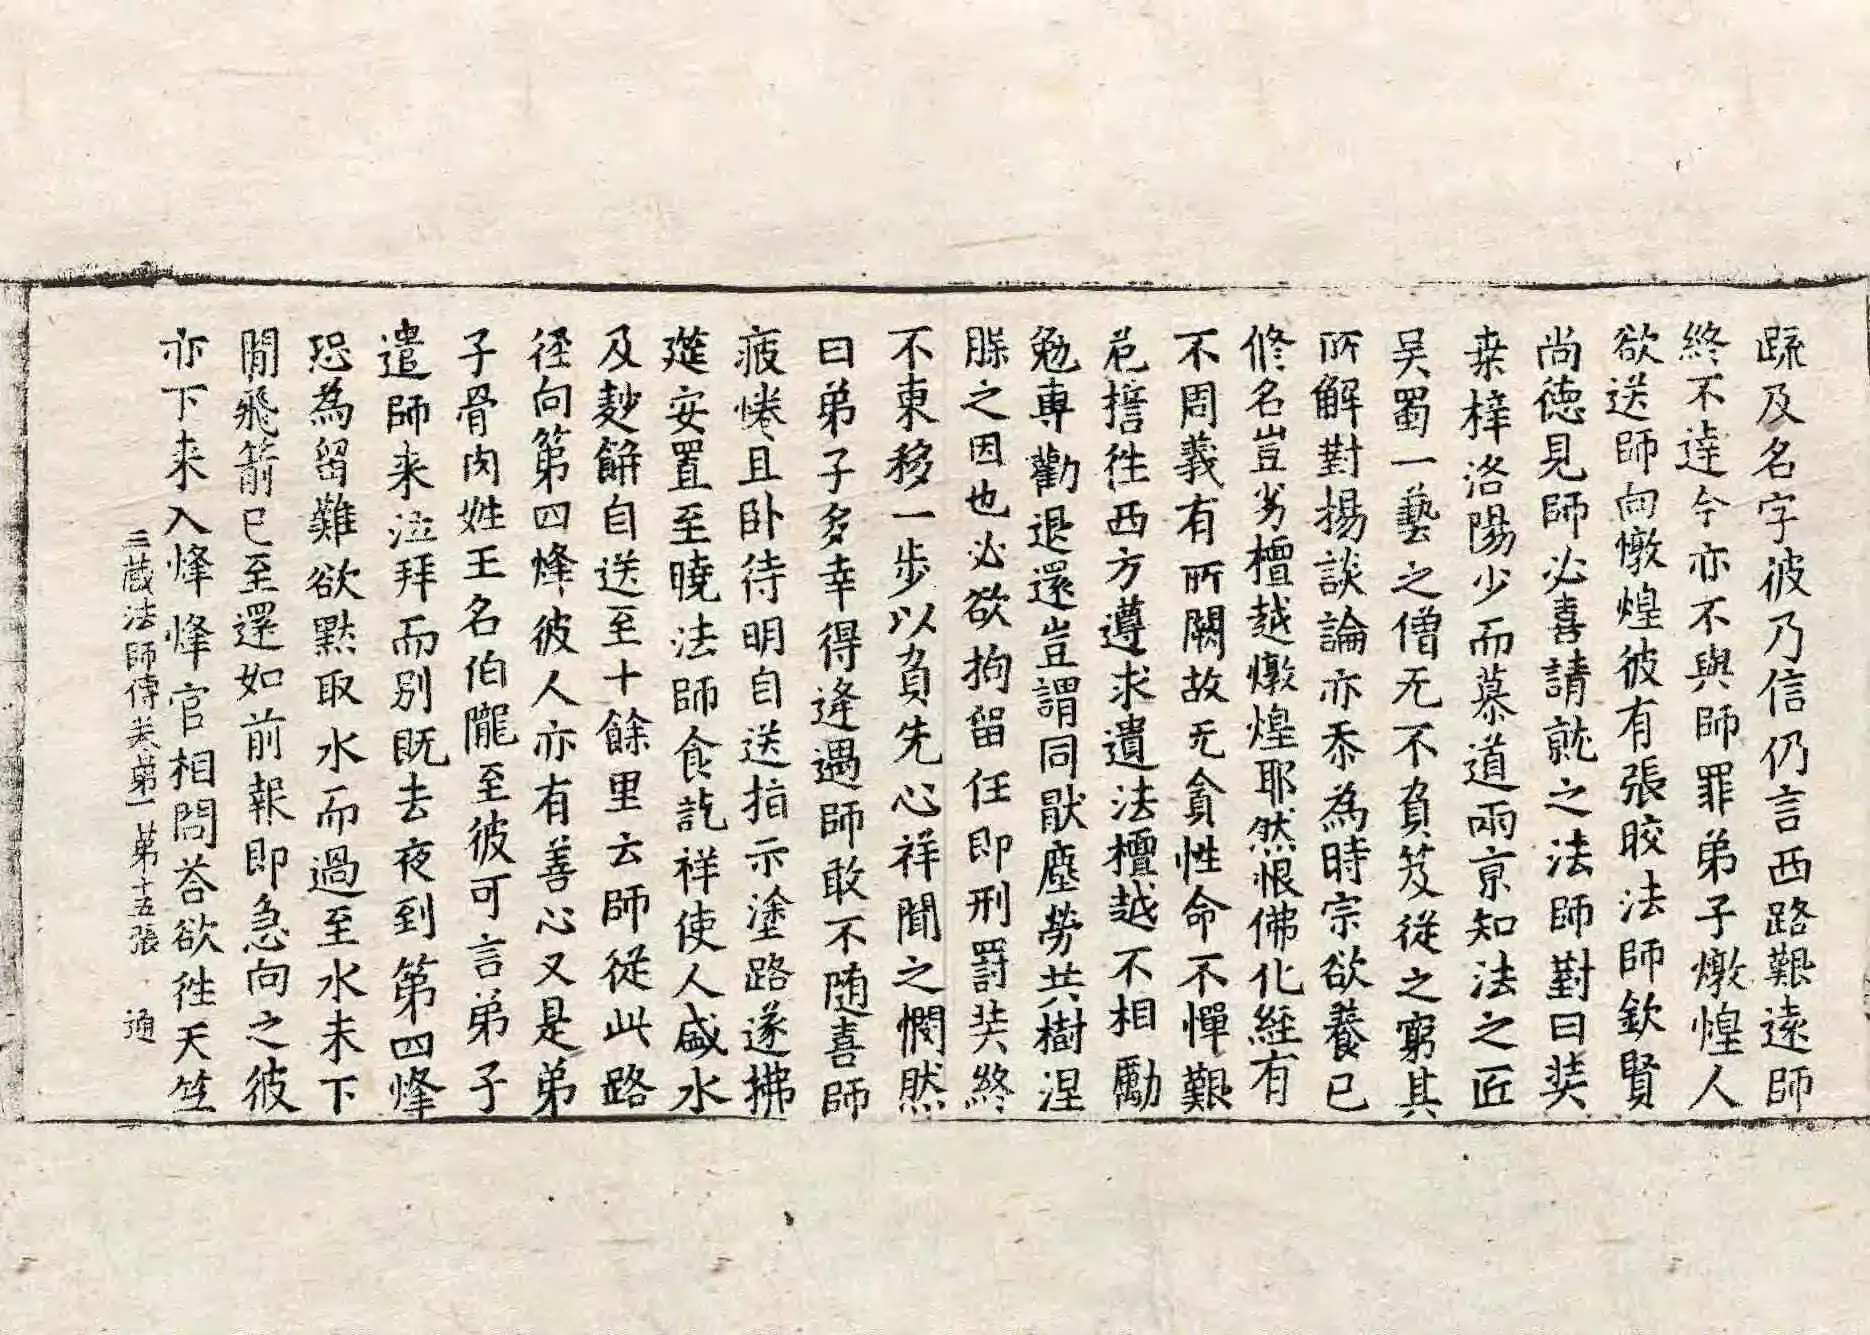 䟽及名字彼乃信仍言西路艱遠師
終不達今亦不與師罪弟子燉煌人
欲送師向燉煌彼有張皎法師欽賢
尚徳見師必喜請就之法師對曰奘
桒梓洛陽少而慕道兩京知法之匠
吴蜀一藝之僧无不負笈從之窮其
所解對揚談論亦忝為時宗欲養已
修名豈劣檀越燉煌耶然恨佛化經有
不周義有所闕故无貪性命不憚艱
危誓徃西方遵求遺法檀越不相勵
勉專勸退還豈謂同猒塵勞共樹涅
槃之因也必欲拘留任即刑罰奘終
不東移一步以負先心祥聞之憫然
曰弟子多幸得逢遇師敢不随喜師
疲惓且卧待明自送指示塗路遂拂
莚安置至曉法師食訖祥使人盛水
及麨餅自送至十餘里云師從此路
徑向第四烽彼人亦有善心又是弟
子骨肉姓王名伯隴至彼可言弟子
遣師来泣拜而別既去夜到第四烽
恐為留難欲黙取水而過至水未下
間飛箭已至還如前報即急向之彼
亦下来入烽烽官相問荅欲徃天竺
三蔵法師傳卷第一 第十五張 通